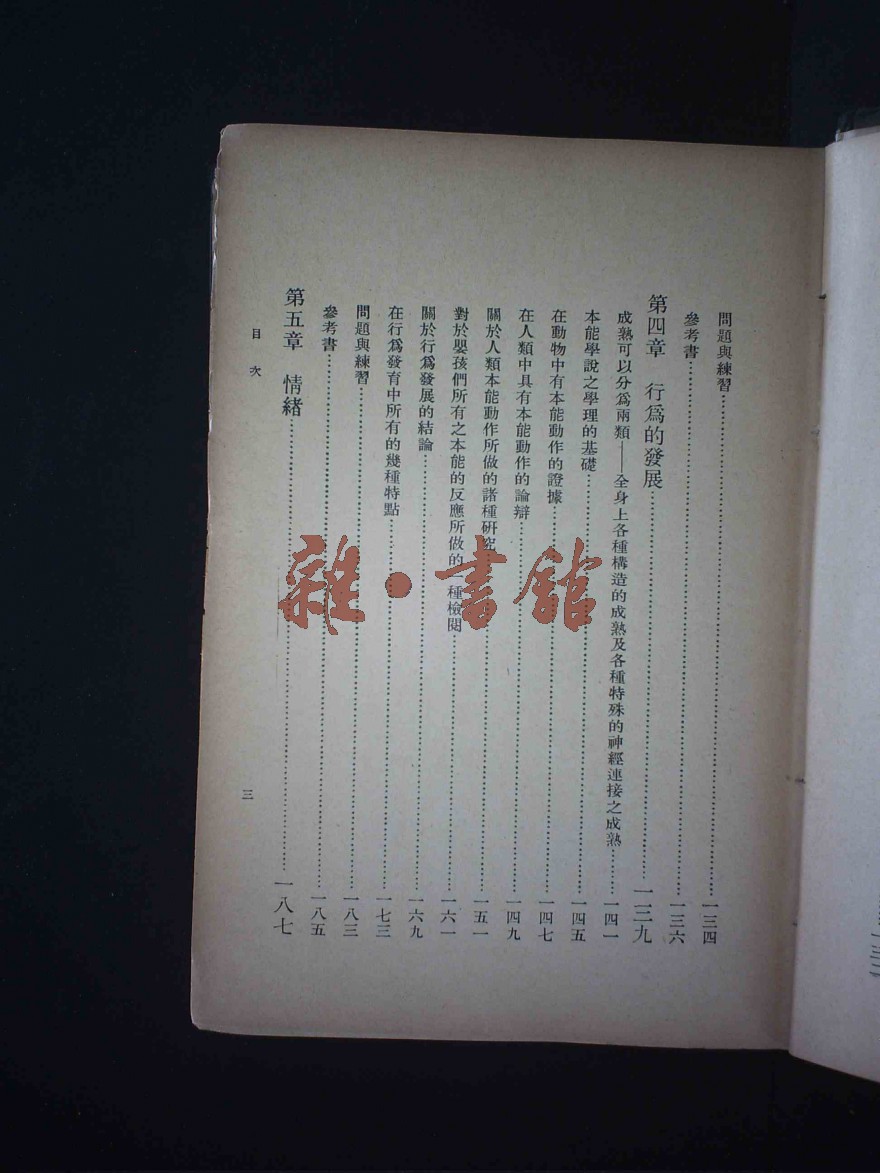 問題與練習……一三四
參考書……一三六
第四章　行爲的發展……一三九
成熟可以分爲兩類——全身上各種構造的成熟及各種特殊的神經連接之成熟……一四一
本能學說之學理的基礎……一四五
在動物中有本能動作的證據……一四七
在人類中具有本能動作的論辯……一四九
關於人類本能動作所做的諸種研究……一五一
對於嬰孩們所有之本能的反應所做的一種檢閱……一六一
關於行爲發展的結論……一六九
在行爲發育中所有的幾種特點……一七三
問題與練習……一八三
參考書……一八五
第五章　情緒……一八七
目次
三
雜·書館